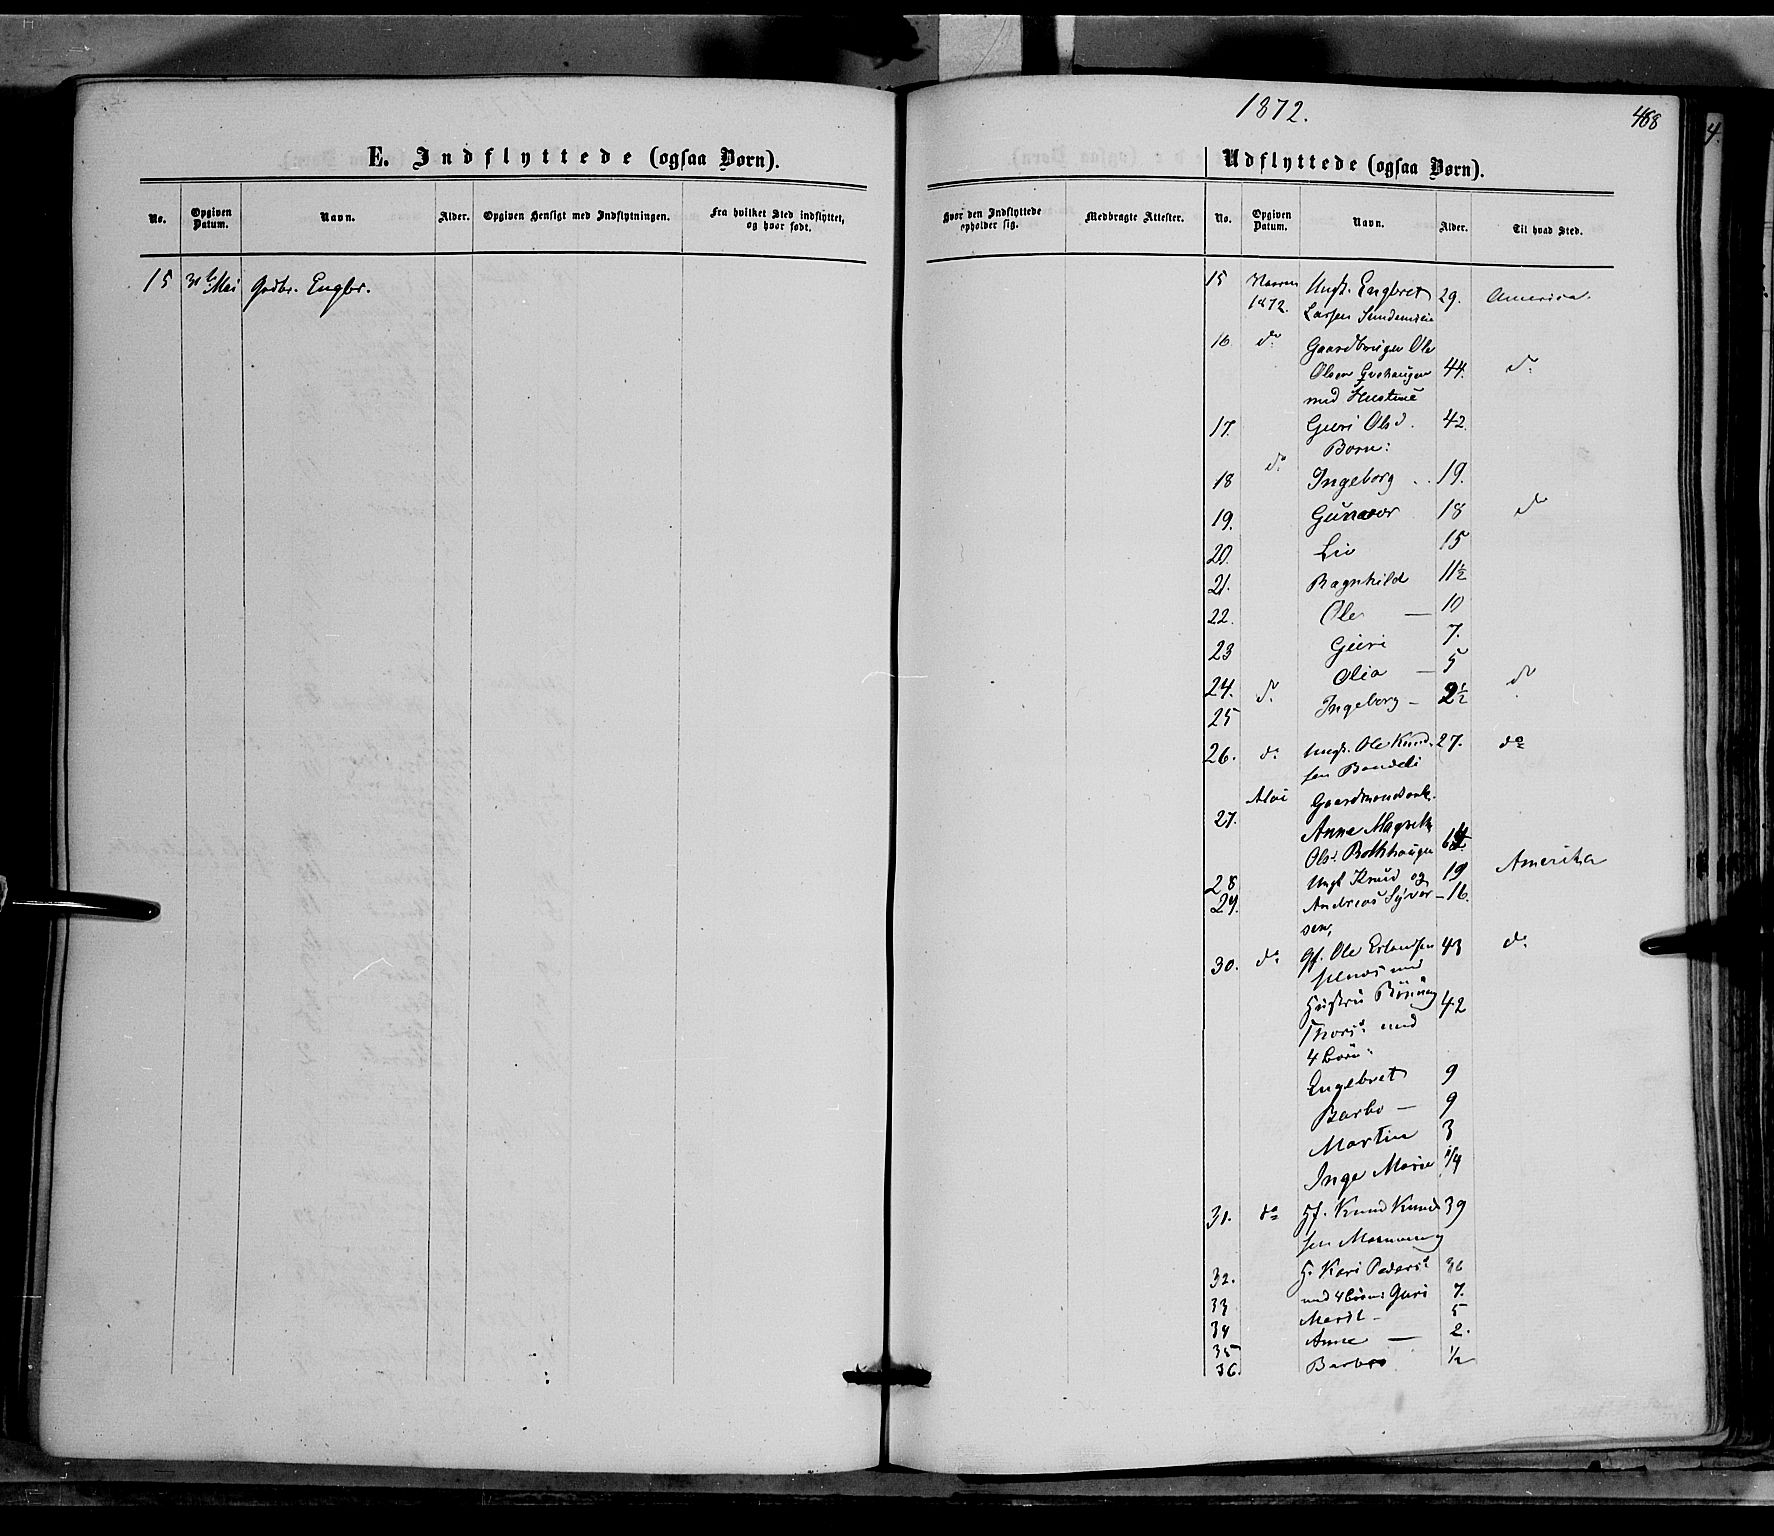 1872.
468
4.
E. Indflyttede (ogsaa Børn).
No. Opgiven Datum. Navn. Alder. Opgiven Hensigt med Indflytningen. Fra hvilket Sted indflyttet, og hvor født.
15 Mai Engbr.
Udflyttede (ogsaa Børn).
Hvor den Indflyttede opholder sig. Medbragte Attester. No. Opgiven Datum. Navn. Alder. Til hvad Sted.
15 Vaaren Ungk. Engbret 29. America.
1872. Larsen
16 do Gaardbruger Ole
Olsen 44. do
med Hustrue
17. Guri Olsd. 42
Børn:
do
18 Ingeborg 19.
19. Gunvor 18 do
20. Liv 15
21. Ragnhild 11½
22. Ole — 10
23 Guri 7.
24. Olia — 5
do do
25 Ingeborg — 2½
26. do Ungk. Ole Knud- 27. do
sen
Mai Gaardmandsenk.
27. Anne
Olsd.
28 Ungk Knud og 19 Amerika
29. Andreas Syver- — 16.
sen,
30. do Gf. Ole Erlandsen 43 do
med
Hustru 42
Thorsd. med
4 Børn:
Engebret 9
Barbo — 9
Martin 3
Inge Marie ¼
31. do Hf. Knud Knud- 39
sen
32. H. Kari Pedersd 36
33 med 4 Børn: Guri 7.
34 Marit — 5
35 Anne — 2.
36. Barbro ½